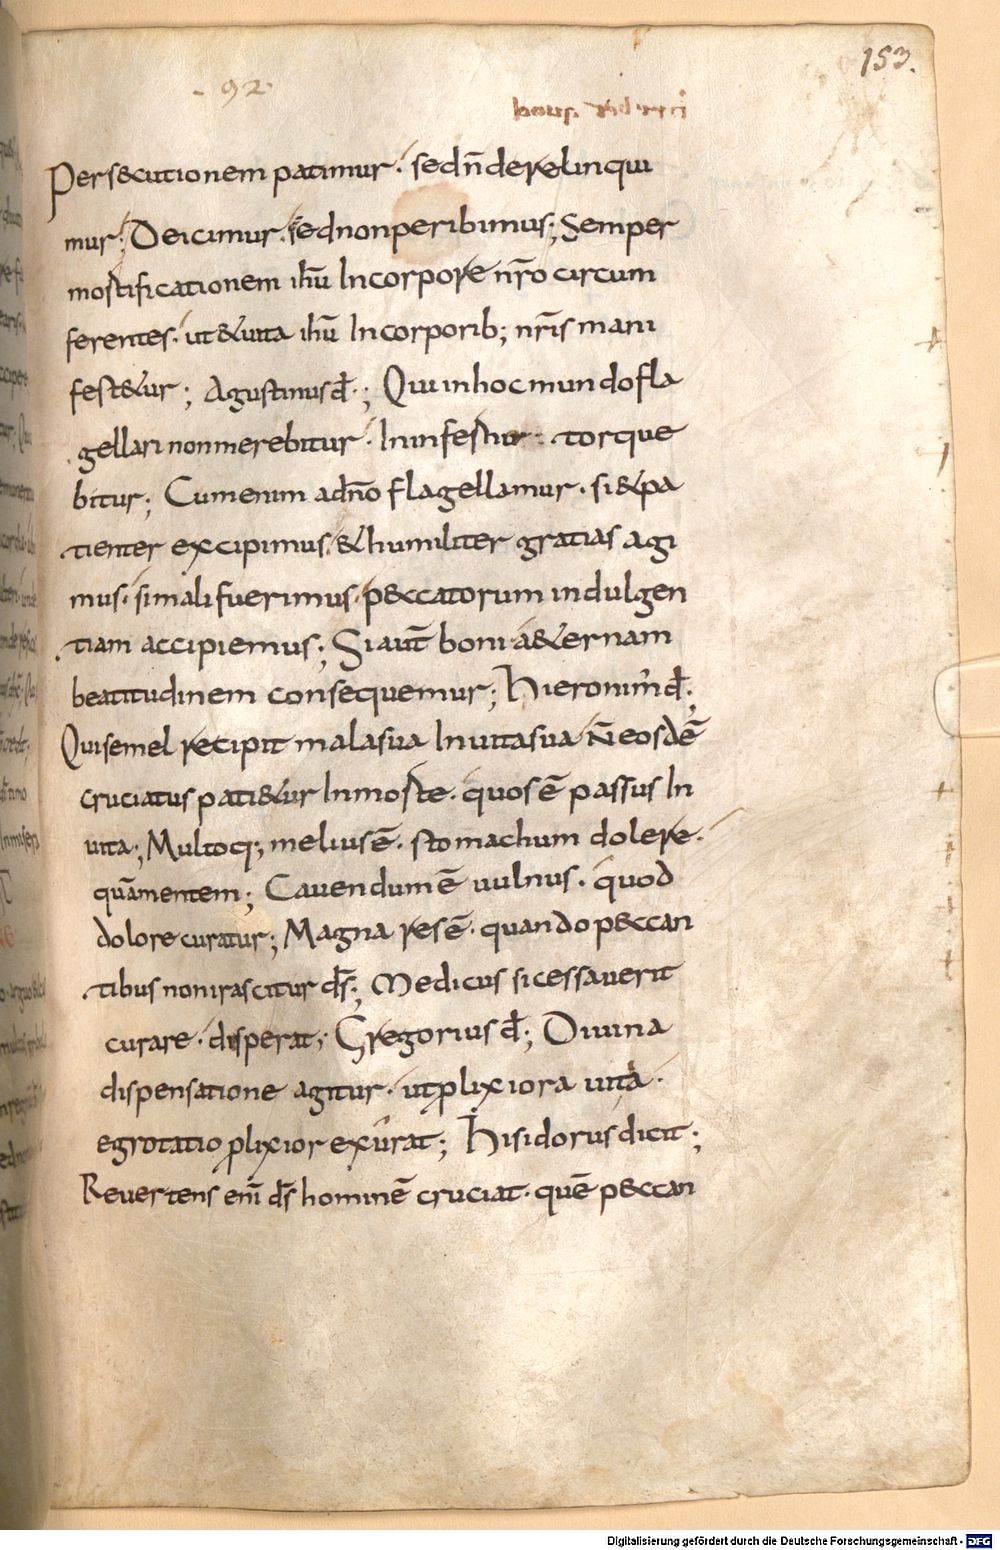 153.
- 92 -
Persecutionem patimur · sed n̄ derelinqui
mur; Deicimur · sed non peribimus; Semper
mortificationem ihū In corpore nr̄o circum
ferentes · ut & uita ihū In corporib; nr̄is mani
fest&ur; Agustinus d̄; Qui in hoc mundo fla
gellari non merebitur · In infernur torque
bitur; Cum enim a dn̄o flagellamur · si & pa
tienter excipimus · & humiliter gratias agi
mus · si mali fuerimus · peccatorum indulgen
tiam accipiemus; Si aut̄ boni a&ernam
beatitudinem consequemur; Hieronim̄ d̄;
Qui semel recipit mala sua In uita sua n̄ eosdē
cruciatus pati&ur In morte · quos ē passus In
uita; Multoq; melius ē · stomachum dolere ·
quā mentem; Cauendum ē uulnus · quod
dolore curatur; Magna res ē · quando peccan
tibus non irascitur ds̄; Medicus si cessauerit
curare · disperat; Gregorius d̄; Diuina
dispensatione agitur · ut plixiora uita ·
egrotatio plixior exurat; Hisidorus dicit;
Reuertens enī ds̄ hominē cruciat · quē peccan
Digitalisierung gefördert durch die Deutsche Forschungsgemeinschaft - DFG